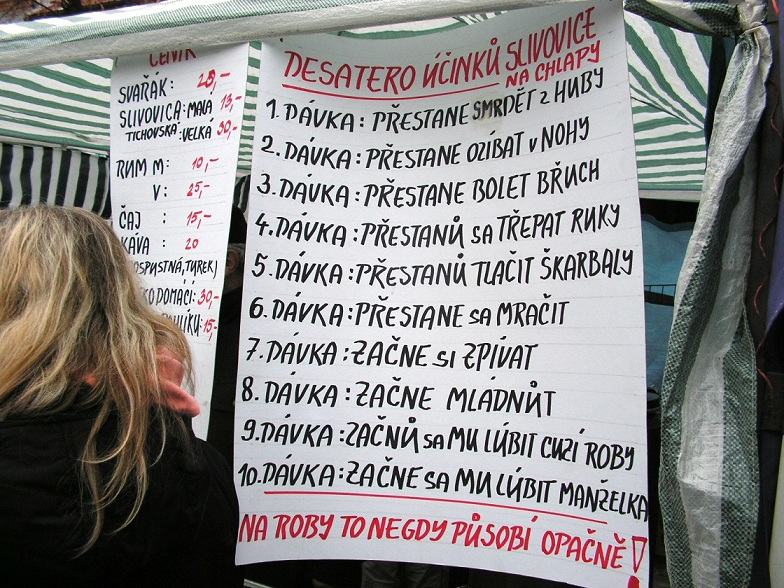 CENÍK
SVAŘÁK: 20,-
SLIVOVICA: MALÁ 15,-
TICHOVSKÁ: VELKÁ 30,-
RUM M: 10,-
V: 25,-
ČAJ : 15,-
KÁVA : 20
OSPUSTNÁ, TUREK)
KO DOMÁCÍ: 30,-
15,-
DESATERO ÚČINKŮ SLIVOVICE
NA CHLAPY
1. DÁVKA: PŘESTANE SMRDĚT z HUBY
2. DÁVKA: PŘESTANE OZIBAT v NOHY
3. DÁVKA: PŘESTANE BOLET BŘUCH
4. DÁVKA: PŘESTANŮ sa TŘEPAT RUKY
5. DÁVKA: PŘESTANŮ TLAČIT ŠKARBALY
6. DÁVKA: PŘESTANE sa MRAČIT
7. DÁVKA: ZAČNE si ZPÍVAT
8. DÁVKA: ZAČNE MLÁDNŮT
9. DÁVKA: ZAČNŮ sa MU LÚBIT CUZÍ ROBY
10. DÁVKA: ZAČNE sa MU LÚBIT MANŽELKA
NA ROBY TO NEGDY PŮSOBÍ OPAČNĚ!